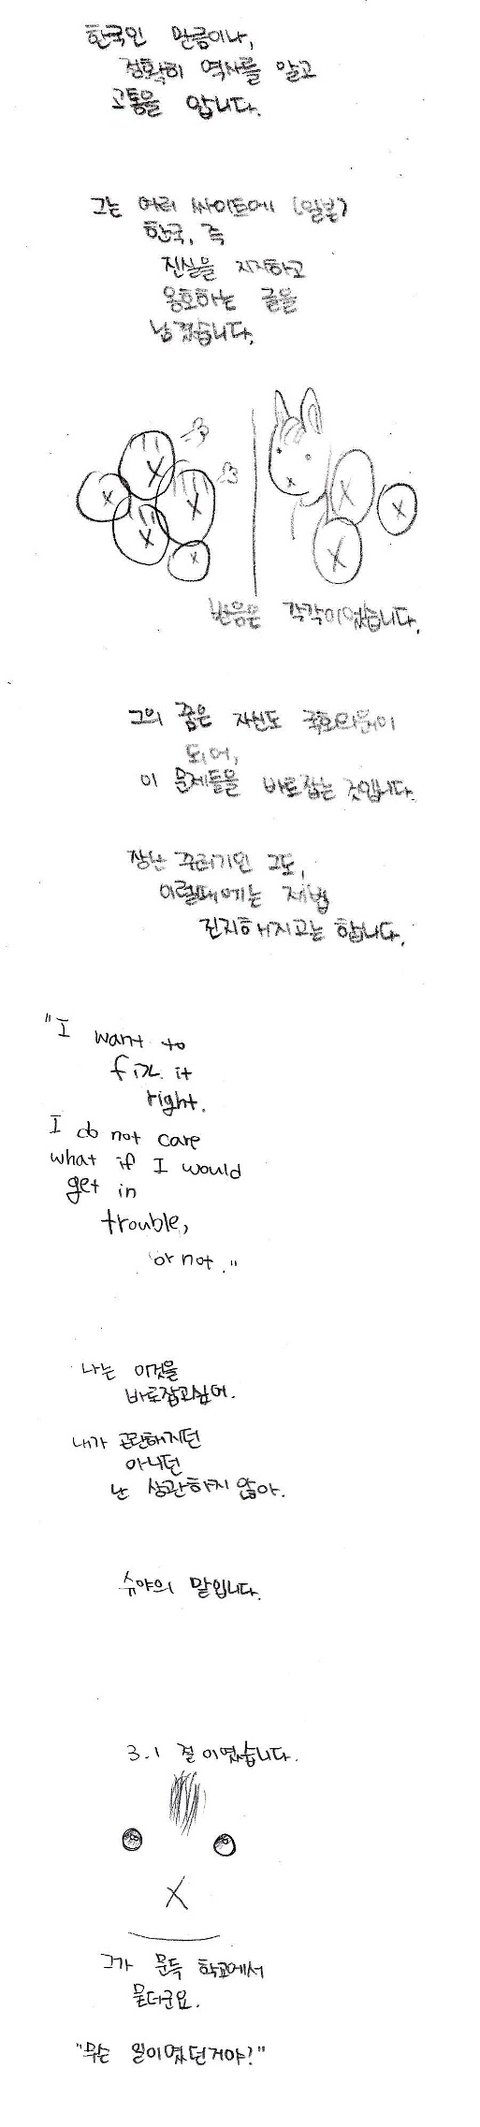 한국인 만큼이나,
정확히 역사를 알고
고통을 압니다.
그는 여러 싸이트에 (일본)
한국, 즉
진실을 지지하고
옹호하는 글을
남겼습니다.
반응은 각각이었습니다.
그의 꿈은 자신도 국회의원이
되어,
이 문제들을 바로잡는 것입니다.
장난 꾸러기인 그도,
이럴때에는 제법
진지해지고는 합니다.
"I want to
fix it
right.
I do not care
what if I would
get in
trouble,
or not."
나는 이것을
바로잡고싶어.
내가 곤란해지던
아니던
난 상관하지 않아.
슈야의 말입니다.
3.1 절이였습니다.
그가 문득 학교에서
묻더군요.
"무슨 일이였던거야?"